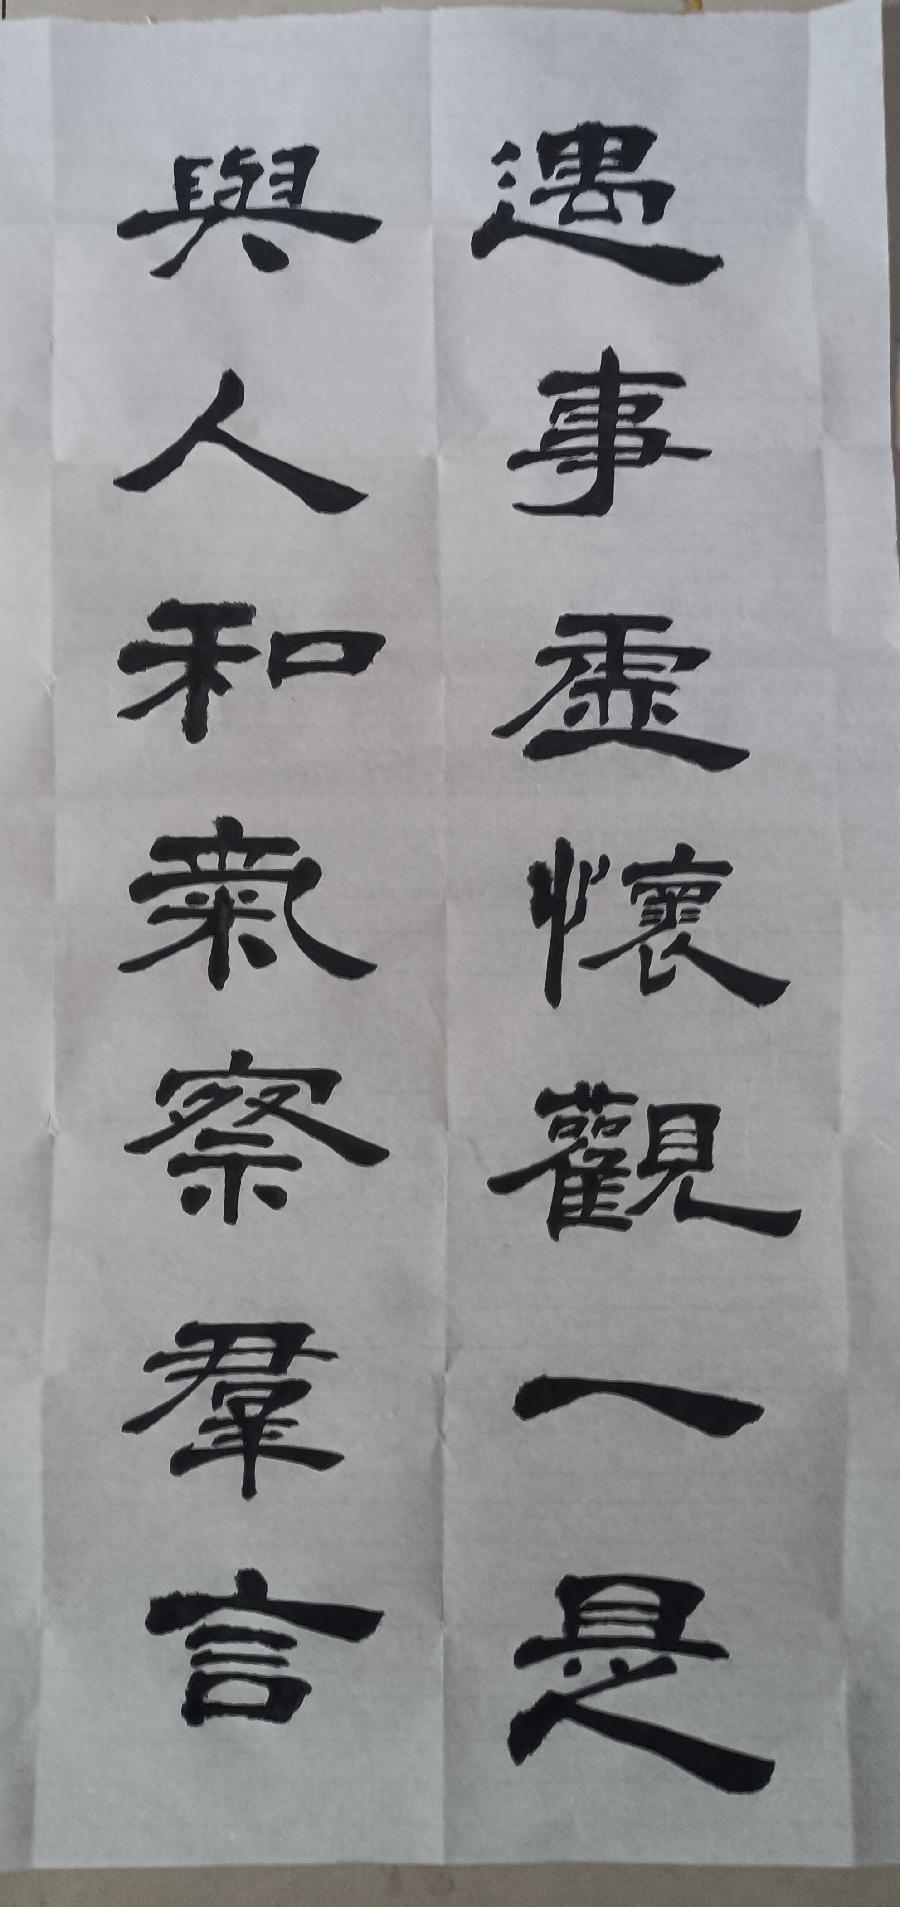 遇事虛懷觀一是
與人和氣察羣言